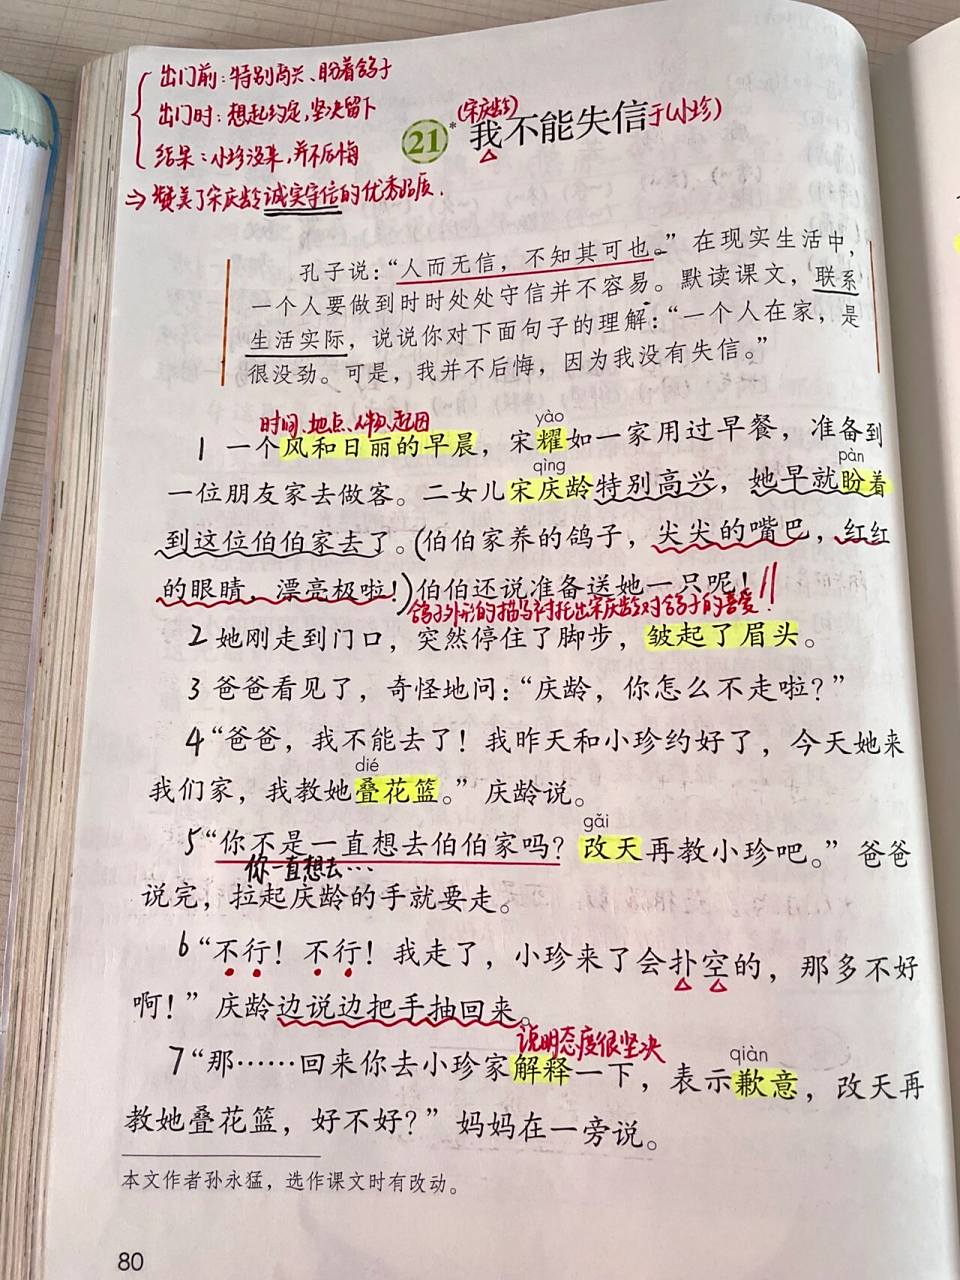 出门前：特别高兴、盼着鸽子
出门时：想起约定，坚决留下
结果：小珍没来，并不后悔
⇒赞美了宋庆龄诚实守信的优秀品质．
(宋庆龄)
21* 我不能失信于(小珍)
孔子说：“人而无信，不知其可也。”在现实生活中，
一个人要做到时时处处守信并不容易。默读课文，联系
生活实际，说说你对下面句子的理解：“一个人在家，是
很没劲。可是，我并不后悔，因为我没有失信。”
时间、地点、人物、起因
yào
1 一个风和日丽的早晨，宋耀如一家用过早餐，准备到
qìng pàn
一位朋友家去做客。二女儿宋庆龄特别高兴，她早就盼着
到这位伯伯家去了。(伯伯家养的鸽子，尖尖的嘴巴，红红
的眼睛，漂亮极啦！)伯伯还说准备送她一只呢！//
鸽子外形的描写衬托出宋庆龄对鸽子的喜爱！
2 她刚走到门口，突然停住了脚步，皱起了眉头。
3 爸爸看见了，奇怪地问：“庆龄，你怎么不走啦？”
4 “爸爸，我不能去了！我昨天和小珍约好了，今天她来
dié
我们家，我教她叠花篮。”庆龄说。
gǎi
5 “你不是一直想去伯伯家吗？改天再教小珍吧。”爸爸
你一直想去…
说完，拉起庆龄的手就要走。
6 “不行！不行！我走了，小珍来了会扑空的，那多不好
啊！”庆龄边说边把手抽回来。
说明态度很坚决
qiàn
7 “那……回来你去小珍家解释一下，表示歉意，改天再
教她叠花篮，好不好？”妈妈在一旁说。
本文作者孙永猛，选作课文时有改动。
80